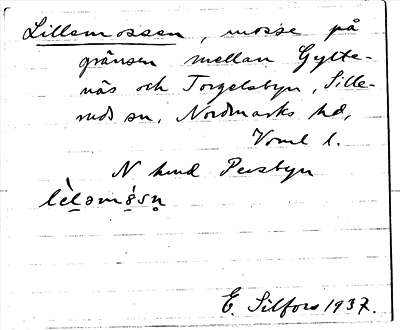 Lillemossen, mosse på
gränsen mellan Gylte-
näs och Torgelsbyn, Sille-
ruds sn, Nordmarks hd,
Vrml l.
N hmd Persbyn
E. Silfors 1937.